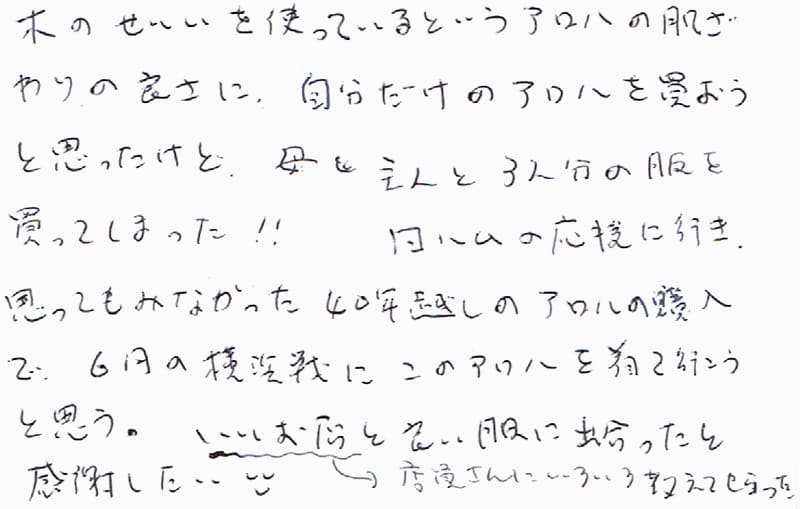 木のせいいを使っているというアロハの肌ざ
わりの良さに、自分だけのアロハを買おう
と思ったけど、母と主人と3人分の服を
買ってしまった!! 日ハムの応援に行き、
思ってもみなかった40年越しのアロハの購入
で、6月の横浜戦にこのアロハを着て行こう
と思う。いいお店と良い服に出合ったと
感謝したい‥
→店員さんにいろいろ教えてもらった